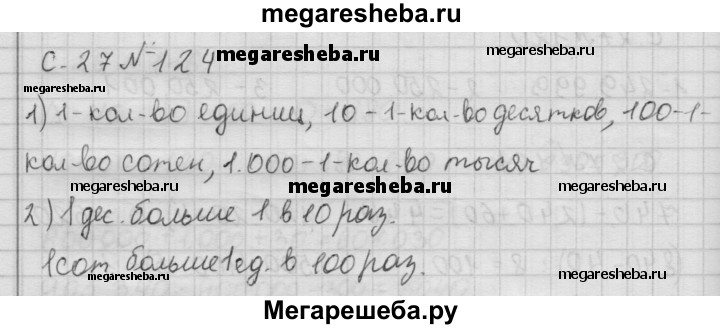 megaresheba.ru
с. 27 № 124
megaresheba.ru
megaresheba.ru
megaresheba.ru
1) 1 - кол-во единиц, 10 - 1 - кол-во десятков, 100 - 1 -
кол-во сотен, 1.000 - 1 - кол-во тысяч
megaresheba.ru
2) 1 дес. больше 1 в 10 раз.
1 сот больше 1 ед. в 100 раз.
megaresheba.ru
megaresheba.ru
Мегарешеба.ру